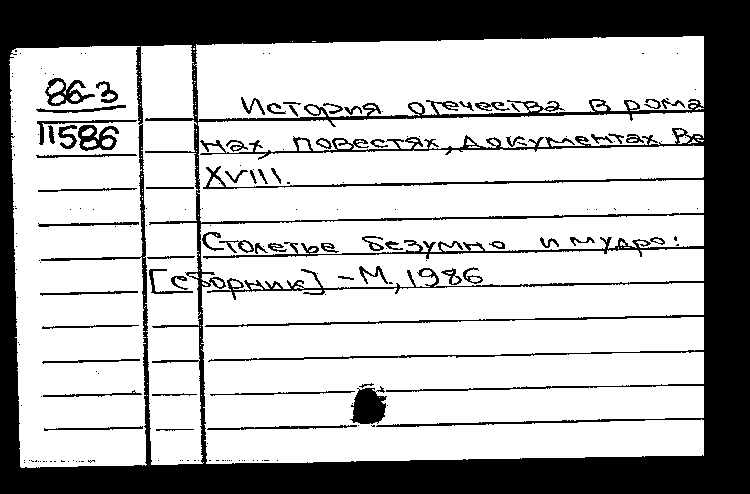 86-3
11586
История отечества в рома
нах, повестях, документах Ве
XVIII.
Столетье безумно и мудро:
[сборник] - М, 1986